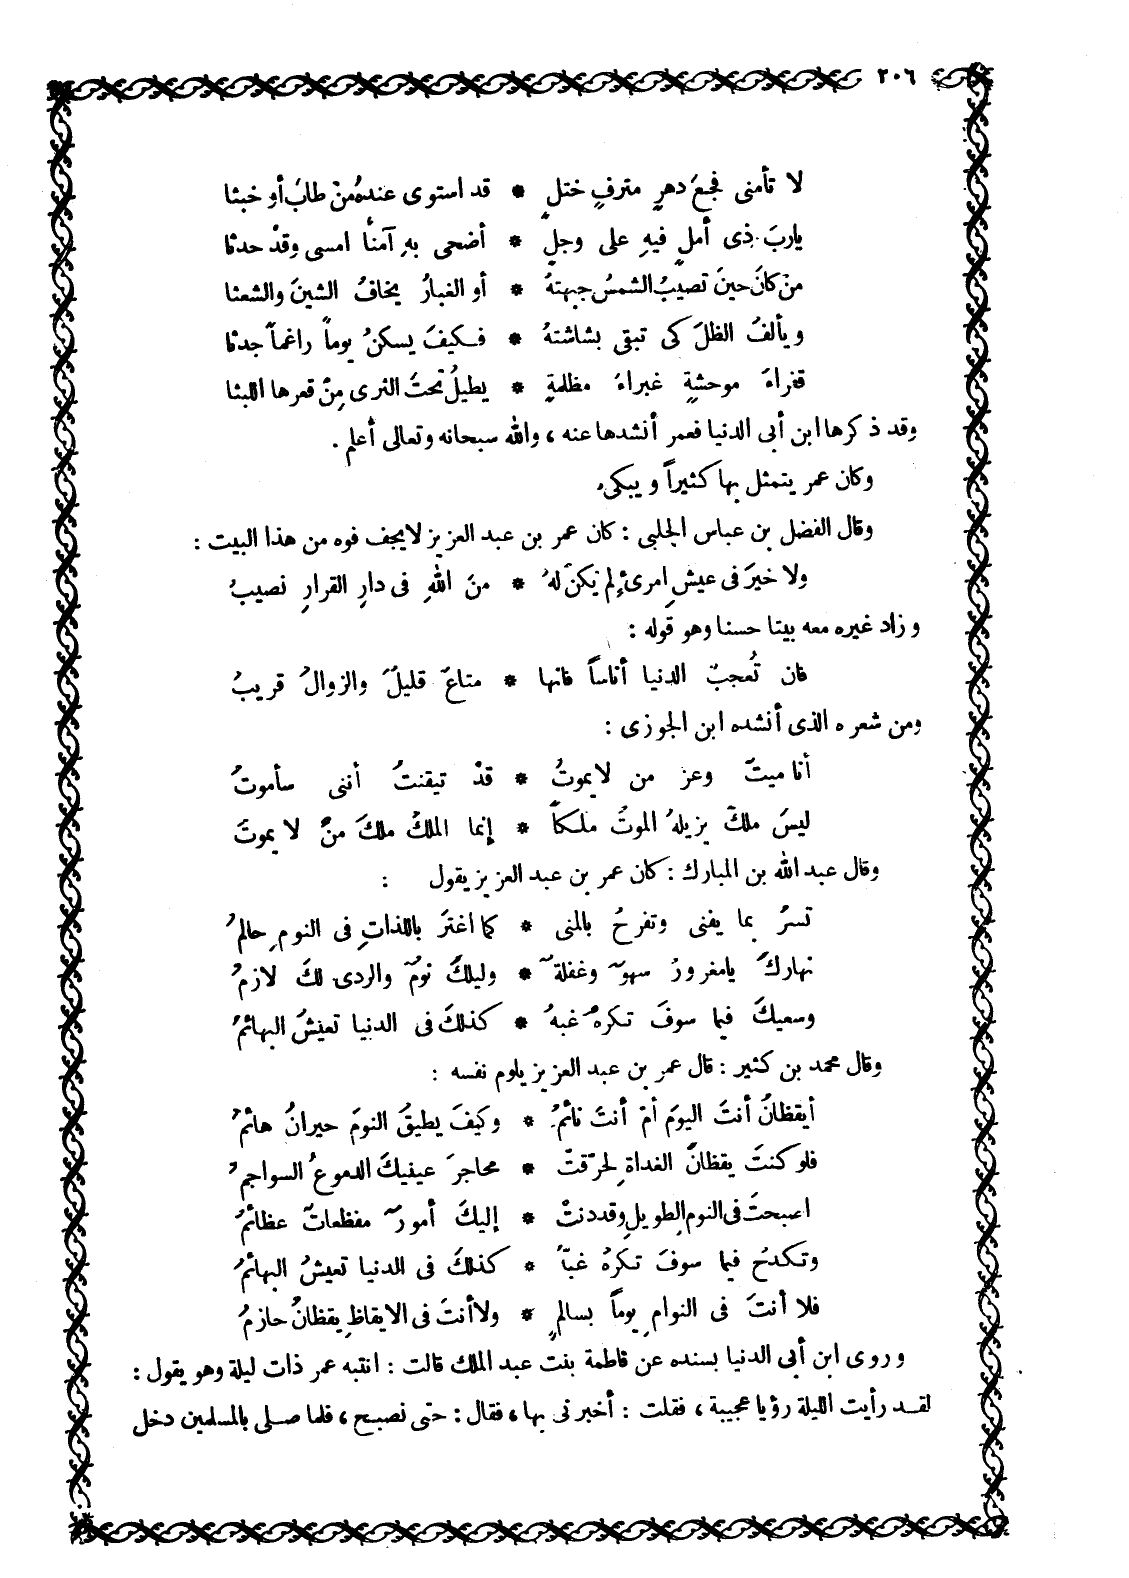 ٢٠٦
لا تأمنى فجعَ دهرٍ مترفٍ ختلٍ * قد استوى عندهُ منْ طابَ أو خبثا
ياربَ ذى أملٍ فيهِ على وجلٍ * أضحى بهِ آمناً امسى وقدْ حدثا
منْ كانَ حينَ تصيبُ الشمسُ جبهتهُ * أو الغبارُ يخافُ الشينَ والشعثا
ويألفُ الظلَ كى تبقى بشاشتهُ * فكيفَ يسكنُ يوماً راغماً جدثا
قفراءَ موحشةٍ غبراءَ مظلمةٍ * يطيلُ تحتَ الثرى مِنْ قعرها اللبثا
وقد ذكرها ابن أبى الدنيا فعمر أنشدها عنه ، والله سبحانه وتعالى أعلم .
وكان عمر يتمثل بها كثيراً ويبكى .
وقال الفضل بن عباس الحلبى : كان عمر بن عبد العزيز لا يجف فوه من هذا البيت :
ولا خيرَ فى عيشِ امرئٍ لم يَكنْ لهُ * منَ اللهِ فى دارِ القرارِ نصيبُ
وزاد غيره معه بيتا حسنا وهو قوله :
فان تُعجبْ الدنيا أناساً فانها * متاعٌ قليلٌ والزوالُ قريبُ
ومن شعره الذى أنشده ابن الجوزى :
أنا ميتٌ وعز من لا يموتُ * قدْ تيقنتُ أننى سأموتُ
ليسَ ملكٌ يزيلهُ الموتُ ملكاً * إنما الملكُ ملكُ منْ لا يموتُ
وقال عبد الله بن المبارك : كان عمر بن عبد العزيز يقول :
تسرُ بما يفنى وتفرحُ بالمنى * كما اغترَ باللذاتِ فى النومِ حالمُ
نهاركَ يامغرورُ سهوٌ وغفلةٌ * وليلكَ نومٌ والردى لكَ لازمُ
وسعيكَ فيما سوفَ تكرهُ غبهُ * كذلكَ فى الدنيا تعيشُ البهائمُ
وقال محمد بن كثير : قال عمر بن عبد العزيز يلوم نفسه :
أيقظانُ أنتَ اليومَ أمْ أنتَ نائمُ * وكيفَ يطيقُ النومَ حيرانُ هائمُ
فلو كنتَ يقظانَ الغداةِ لحرّقتْ * محاجرَ عينيكَ الدموعُ السواجمُ
اصبحتَ فى النومِ الطويلِ وقد دنتْ * إليكَ أمورٌ مفظعاتٌ عظائمُ
وتكدحُ فيما سوفَ تكرهُ غبّهُ * كذلكَ فى الدنيا تعيشُ البهائمُ
فلا أنتَ فى النوامِ يوماً بسالمٍ * ولا أنتَ فى الايقاظِ يقظانُ حازمُ
وروى ابن أبى الدنيا بسنده عن فاطمة بنت عبد الملك قالت : انتبه عمر ذات ليلة وهو يقول :
لقد رأيت الليلة رؤيا عجيبة ، فقلت : أخبرنى بها ، فقال : حتى نصبح ، فلما صلى بالمسلمين دخل